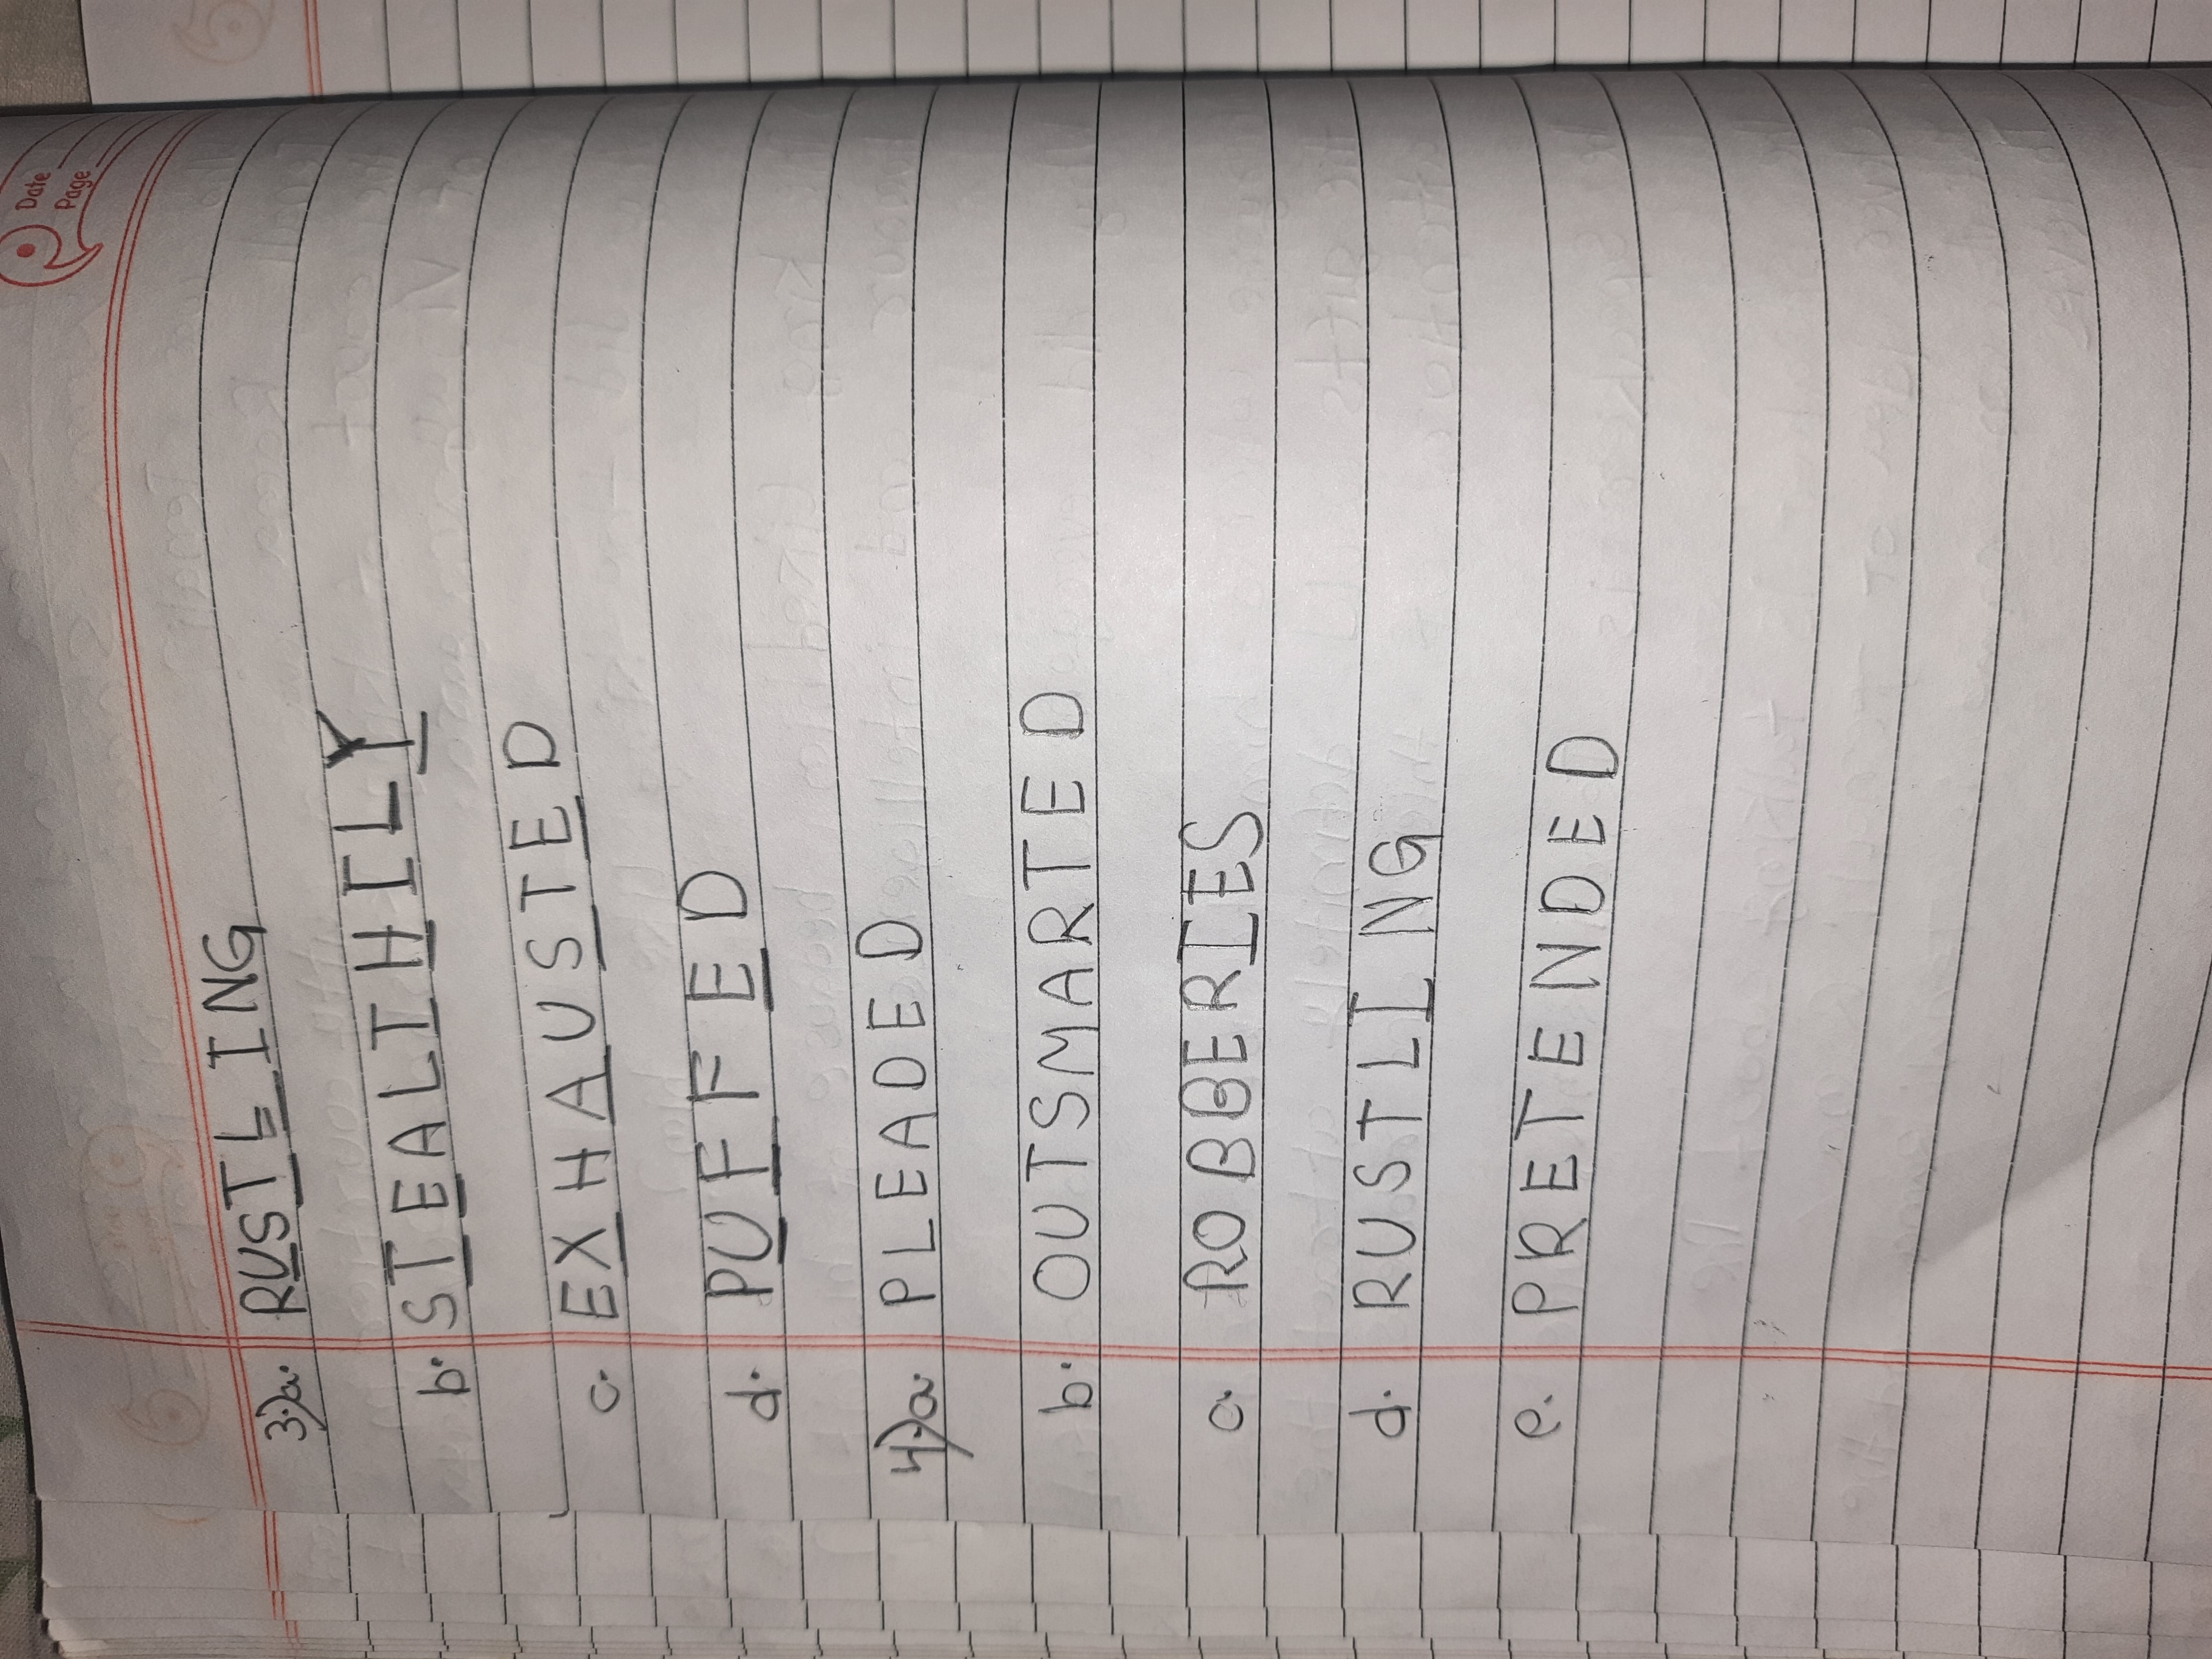 Date
Page
3.) a. RUSTLING
b. STEALTHILY
c. EXHAUSTED
d. PUFFED
4.) a. PLEADED
b. OUTSMARTED
c. ROBBERIES
d. RUSTLING
e. PRETENDED